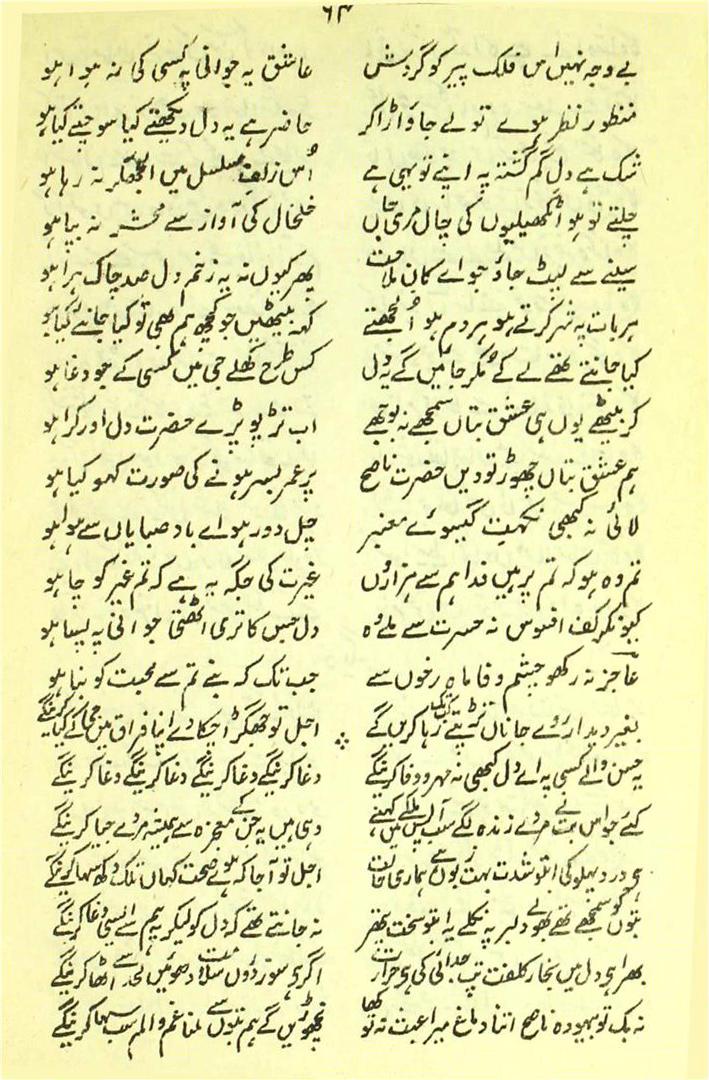 ۶۴
بے وجہ نہیں اس فلک پیر کو گردش عاشق یہ جوانی پہ کسی کی نہ ہوا ہو
منظور نظر ہووے تو لے جاؤ اڑا کر حاضر ہے یہ دل دیکھتے کیا سوچتے کیا ہو
شک ہے دل گم گشتہ پہ اپنے تو یہی ہے اُس زلف مسلسل میں الجھکر نہ رہا ہو
چلتے تو ہو اٹکھیلیوں کی چال مری جاں خلخال کی آواز سے محشر نہ بپا ہو
سینے سے لپٹ جاؤ جو اے کان ملاحت پھر کیوں نہ یہ زخم دل صد چاک ہرا ہو
ہر بات پہ شر کرتے ہو ہر دم ہو اُلجھتے کہہ بیٹھیں جو کچھ ہم بھی تو کیا جانئے کیا ہو
کیا جانتے تھے لے کے مُکر جائیں گے یہ دل کس طرح کھلے جی میں کسی کے جو دغا ہو
کر بیٹھے یوں ہی عشق بتاں سمجھے نہ بوجھے اب تڑپو پڑے حضرت دل اور کراہو
ہم عشق بتاں چھوڑ تو دیں حضرت ناصح پر عمر بسر ہونے کی صورت کہو کیا ہو
لائی نہ کبھی نکہت گیسوئے معنبر چل دور ہو اے باد صبا یاں سے ہوا ہو
تم وہ ہو کہ تم پر ہیں فدا ہم سے ہزاروں غیرت کی جگہ یہ ہے کہ تم غیر کو چاہو
کیونکر کف افسوس نہ حسرت سے ملے وہ دل جس کا تری اٹھتی جوانی پہ پسا ہو
عاجز نہ رکھو چشم وفا ماہ رخوں سے جب تک کہ بنے تم سے محبت کو نباہو
بغیر دیدار روے جاناں تڑپتے کب تک رہا کریں گے اجل تو جھگڑا چکا دے اپنا فراق میں جی کے کیا کرینگے
یہ حسن والے کسی پہ اے دل کبھی نہ مہر و وفا کرینگے دغا کرینگے دغا کرینگے دغا کرینگے دغا کرینگے
کئے جو اس بت نے مردے زندہ لگے سب آپس میں ملکے کہنے وہی ہیں یہ جن کے معجزہ سے ہمیشہ مردے جیا کرینگے
ہی درد پہلو کی ابتو شدت بہت زبوں ہے ہماری حالت اجل تو آجا کہ ہوے صحت کہاں تلک دکھ سہا کرینگے
بتوں کو سمجھے تھے بھولے دلبر پہ نکلے یہ ابتو سخت پتھر نہ جانتے تھے کہ دل کو لیکر یہ ہم سے ایسی دغا کرینگے
بھرا ہی دل میں بخار کلفت تپ جدائی کی ہی حرارت اگر ہی سوز دروں سلامت دھوئیں لحد سے اٹھا کرینگے
نہ بک تو بیہودہ ناصح اتنا دماغ میرا عبث نہ تو کھا نچھوڑیں گے ہم بتوں سے ملنا غم و الم سب سہا کرینگے